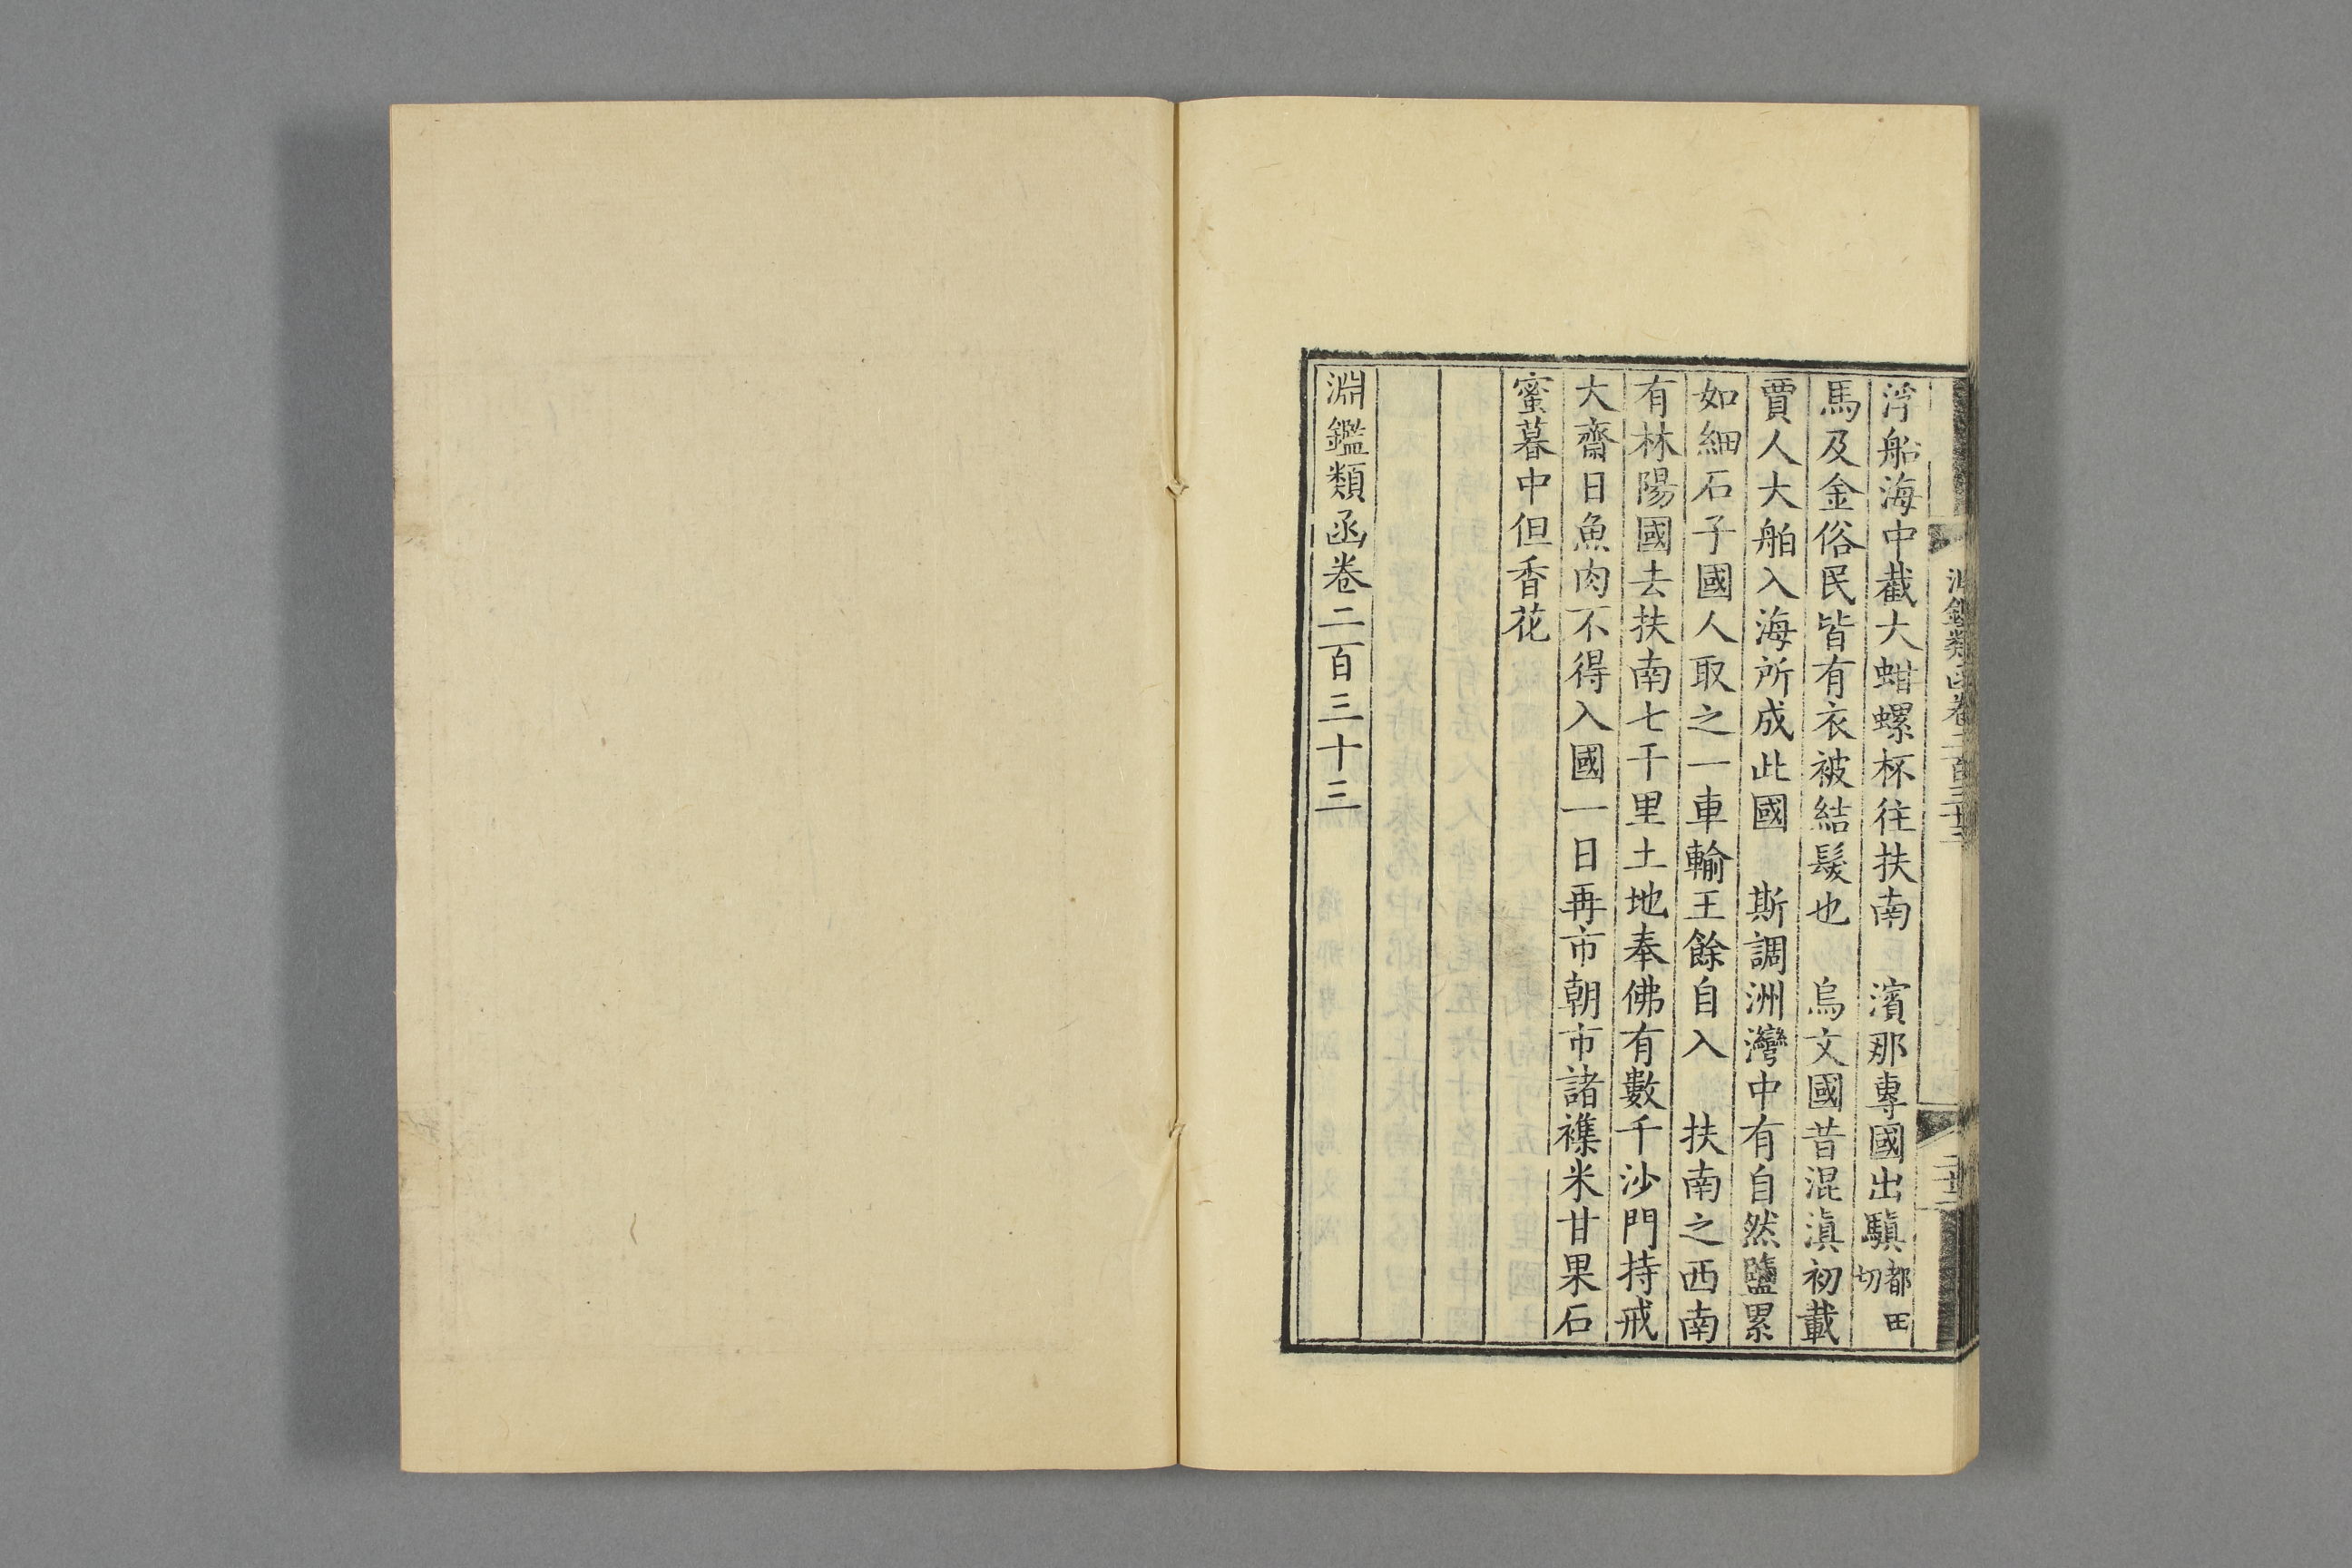 浮船海中截大蚶螺杯往扶南　濱那專國出驥都田切
馬及金俗民皆有衣被結髮也　烏文國昔混滇初載
賈人大舶入海所成此國　斯調洲灣中有自然鹽累
如細石子國人取之一車輸王餘自入　扶南之西南
有林陽國去扶南七千里土地奉佛有數千沙門持戒
大齋日魚肉不得入國一日再市朝市諸襍米甘果石
蜜暮中但香花
淵鑑類函卷二百三十三